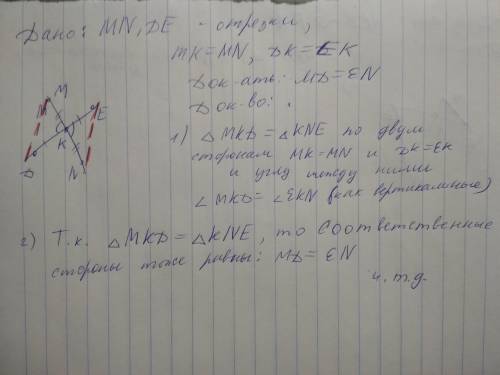 Дано: MN, DE - отрезки,
MK = MN, DK = EK
Док-ать: MD = EN
Док-во:
M
E
K
D
N
1) △MKD = △KNE по двум
сторонам MK = MN и DK = EK
и углу между ними
∠MKD = ∠EKN (как вертикальные)
2) Т.к. △MKD = △KNE, то соответственные
стороны тоже равны: MD = EN
ч.т.д.